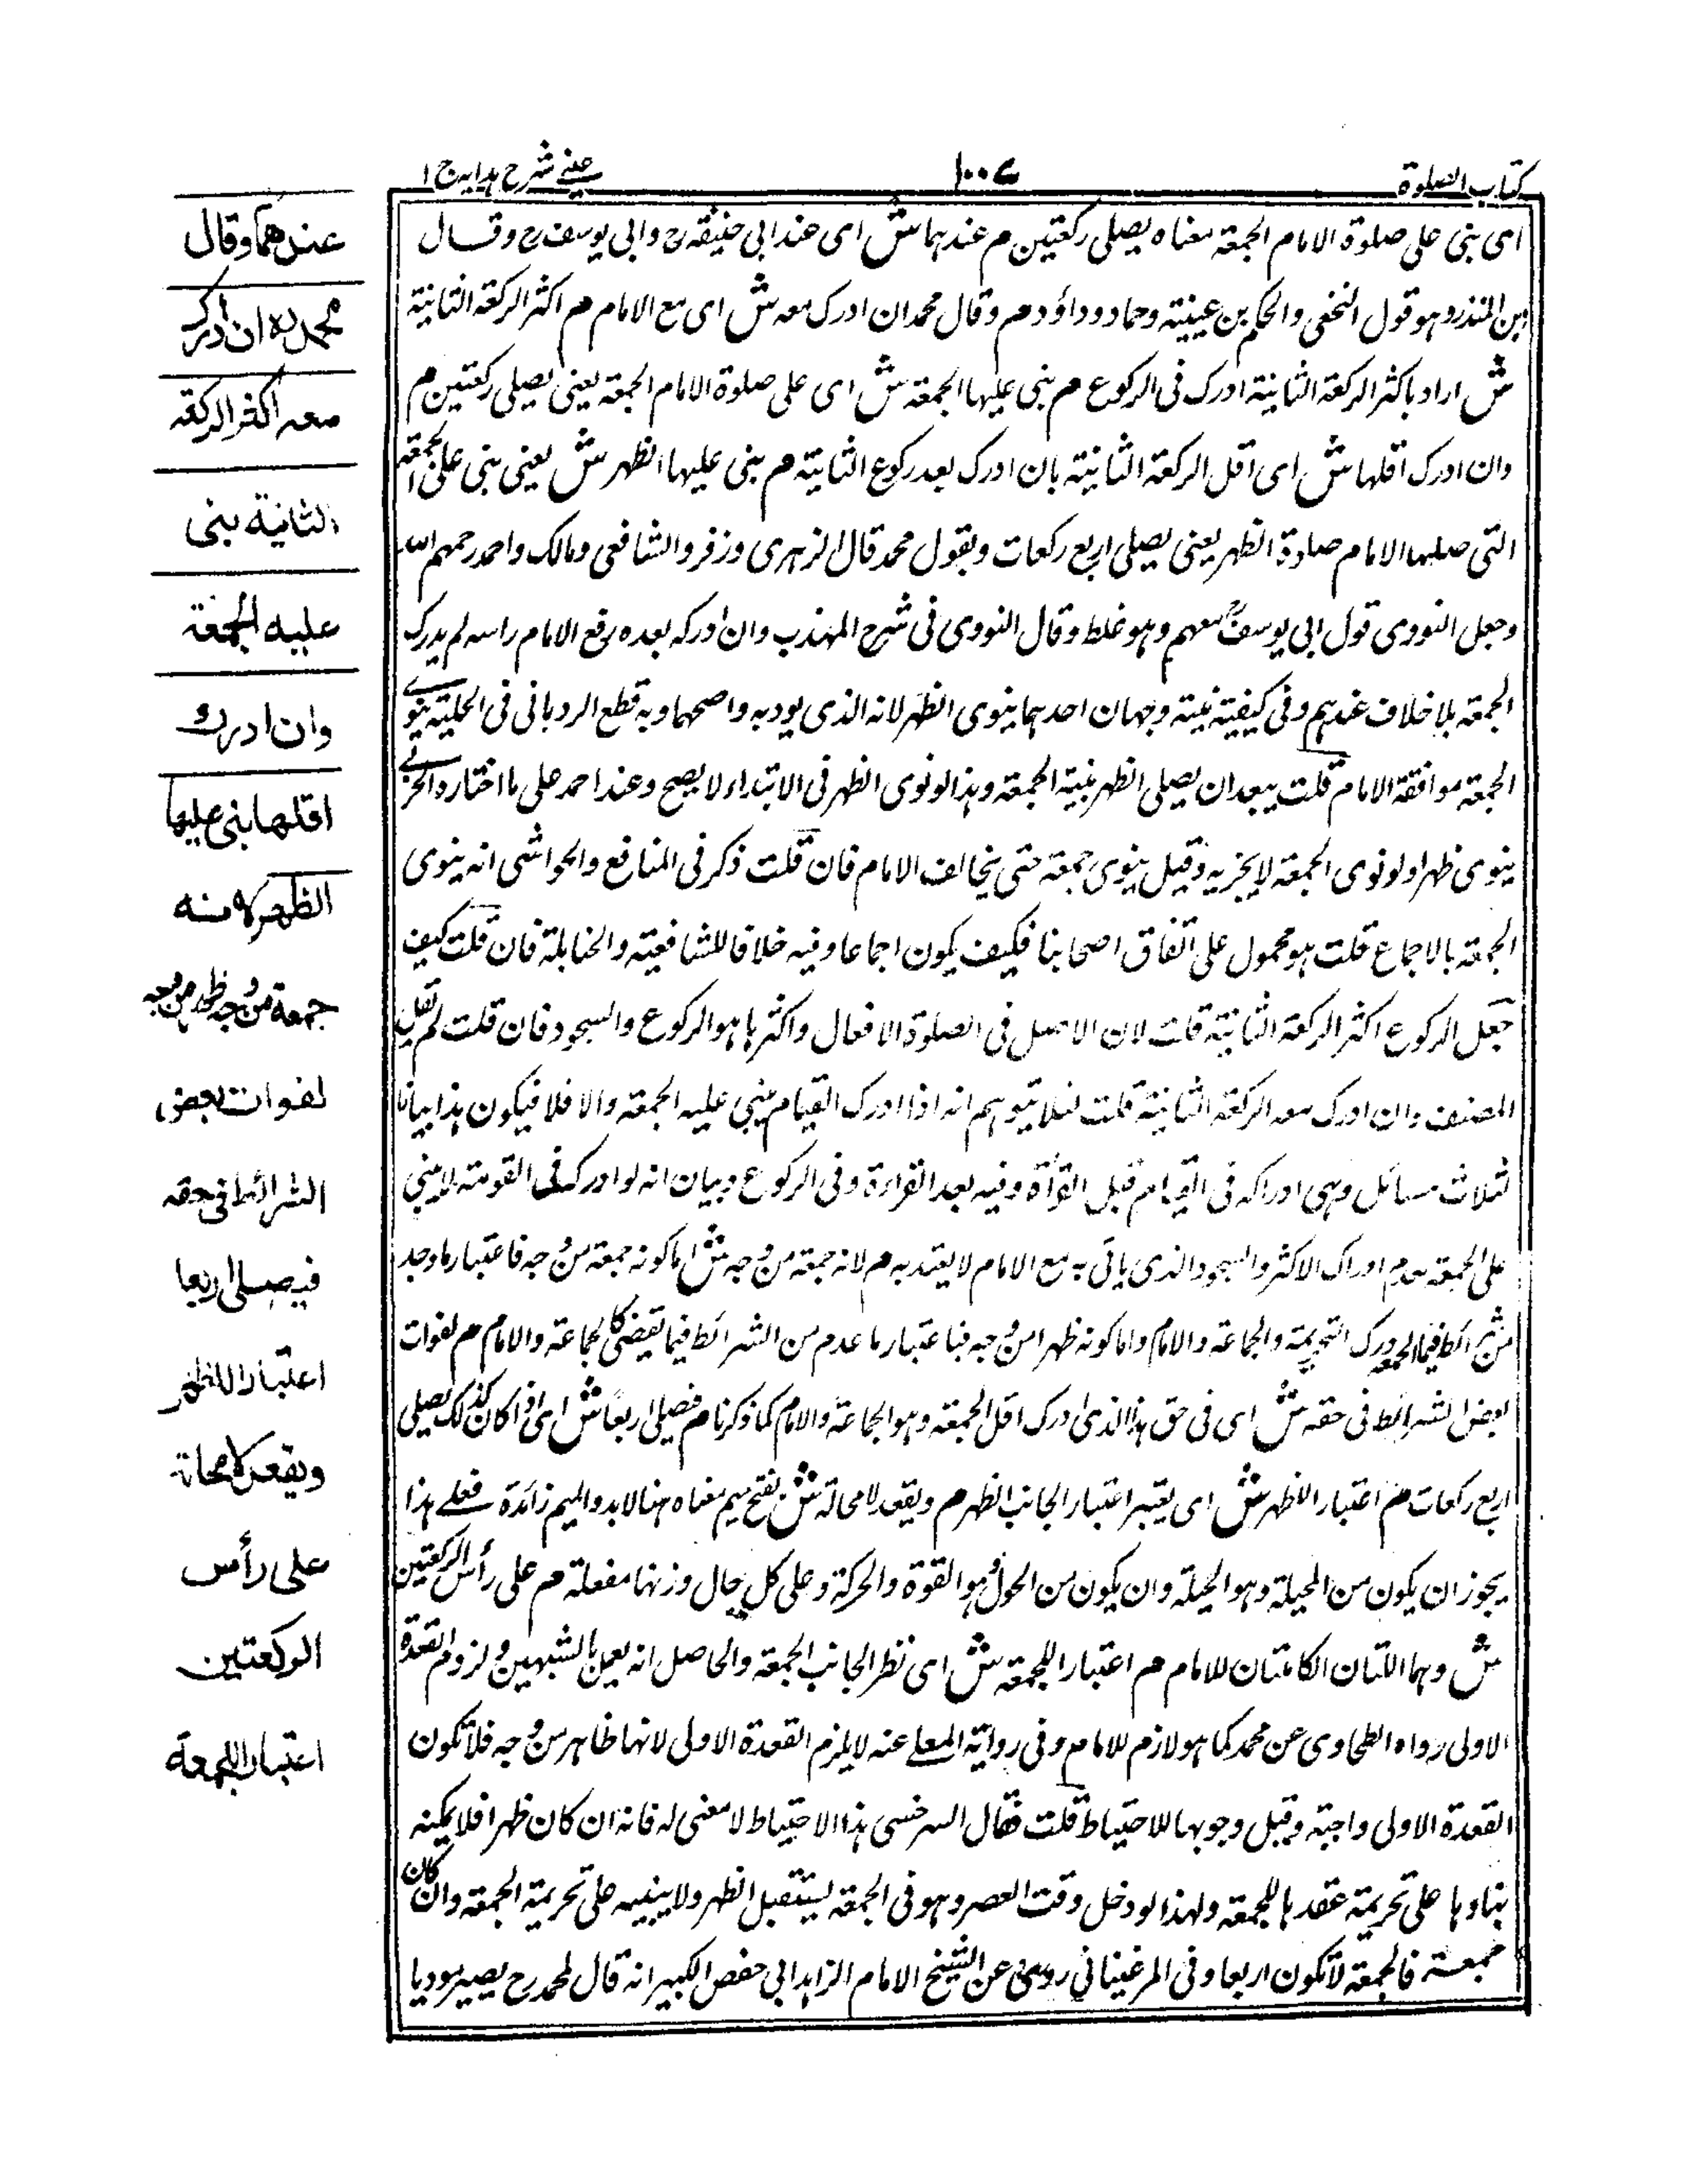 كتاب الصلوة
١٠٠٧
عينى شرح هدايه ج ١
اى بنى على صلوة الامام الجمعة معناه يصلى ركعتين م عندهما ش اى عند ابى حنيفة رح وابى يوسف رح وقال
ابن المنذر وهو قول النخعى والحكم بن عيينة وحماد وداؤد م وقال محمد ان ادرك معه ش اى مع الامام م اكثر الركعة الثانية
ش اراد باكثر الركعة الثانية ادرك فى الركوع م بنى عليها الجمعة ش اى على صلوة الامام الجمعة يعنى يصلى ركعتين م
وان ادرك اقلها ش اى اقل الركعة الثانية بان ادرك بعد ركوع الثانية م بنى عليها الظهر ش يعنى بنى على الجمعة
التى صلها الامام صلوة الظهر يعنى يصلى اربع ركعات وبقول محمد قال الزهرى وزفر والشافعى ومالك واحمد رحمهم الله
وجعل النووى قول ابى يوسف رح معهم وهو غلط وقال النووى فى شرح المهذب وان ادركه بعده رفع الامام راسه لم يدرك
الجمعة بلا خلاف عندهم وفى كيفية نيته وجهان احدهما ينوى الظهر لانه الذى يوديه واصحهما وبه قطع الرويانى فى الحلية ينوى
الجمعة موافقة الامام قلت يبعد ان يصلى الظهر بنية الجمعة وهذا لو نوى الظهر فى الابتداء لا يصح وعند احمد على ما اختاره الخرقى
ينوى ظهرا ولو نوى الجمعة لا يجزيه وقيل ينوى جمعة حتى يخالف الامام فان قلت ذكر فى المنافع والحواشى انه ينوى
الجمعة بالاجماع قلت هو محمول على اتفاق اصحابنا فكيف يكون اجماعا وفيه خلافا للشافعية والحنابلة فان قلت كيف
جعل الركوع اكثر الركعة الثانية قلت لان الاصل فى الصلوة الافعال واكثرها هو الركوع والسجود فان قلت لم لم يقل
المصنف وان ادرك معه الركعة الثانية قلت لئلا يتوهم انه اذا ادرك القيام يبنى عليه الجمعة والا فلا فيكون هذا بيانا
لثلاث مسائل وهى ادراكه فى القيام قبل القرأة وفيه بعد القراءة وفى الركوع وبيان انه لو ادركه فى القومة لا يبنى
على الجمعة لعدم ادراك الاكثر والسجود الذى يأتى به مع الامام لا يعتد به م لانه جمعة من وجه ش اما كونه جمعة من وجه فاعتبار ما وجد
من شرائط فيما ادرك التحريمة والجماعة والامام واما كونه ظهرا من وجه فباعتبار ما عدم من الشرائط فيما يقضى كالجماعة والامام م لفوات
بعض الشرائط فى حقه ش اى فى حق هذا الذى ادرك اقل الجمعة وهو الجماعة والامام كما ذكرنا م فيصلى اربعا ش اى اذا كان كذلك يصلى
اربع ركعات م اعتبارا للظهر ش اى يعتبر اعتبارا لجانب الظهر م ويقعد لا محالة ش بفتح ميم معناه هنا لا بد والميم زائدة فعلى هذا
يجوز ان يكون من الحيلة وهو الحيلة وان يكون من الحول وهو القوة والحركة وعلى كل حال وزنها مفعلة م على رأس الركعتين
ش وهما اللتان الكائنتان للامام م اعتبارا للجمعة ش اى نظرا لجانب الجمعة والحاصل انه يعمل بالشبهين ولزوم القعدة
الاولى رواه الطحاوى عن محمد كما هو لازم للامام وفى رواية المعلى عنه لا يلزم القعدة الاولى لانها ظاهر من وجه فلا تكون
القعدة الاولى واجبة وقيل وجوبها للاحتياط قلت فقال السرخسى هذا الاحتياط لا معنى له فانه ان كان ظهرا فلا يمكنه
بناوها على تحريمة عقدها للجمعة ولهذا لو دخل وقت العصر وهو فى الجمعة يستقبل الظهر ولا يبنيه على تحريمة الجمعة وان كان
جمعة فالجمعة لا تكون اربعا وفى المرغينانى روى عن الشيخ الامام الزاهد ابى حفص الكبير انه قال لمحمد رح يصير موديا
عندهما وقال
محمد رہ ان ادرك
معه اكثر الركعة
الثانية بنى
عليه الجمعة
وان ادرك
اقلها بنى عليها
الظهر لانه
جمعة من وجه ظهر من وجه
لفوات بعض
الشرائط فى حقه
فيصلى اربعا
اعتبارا للظهر
ويقعد لا محالة
على رأس
الركعتين
اعتبارا للجمعة